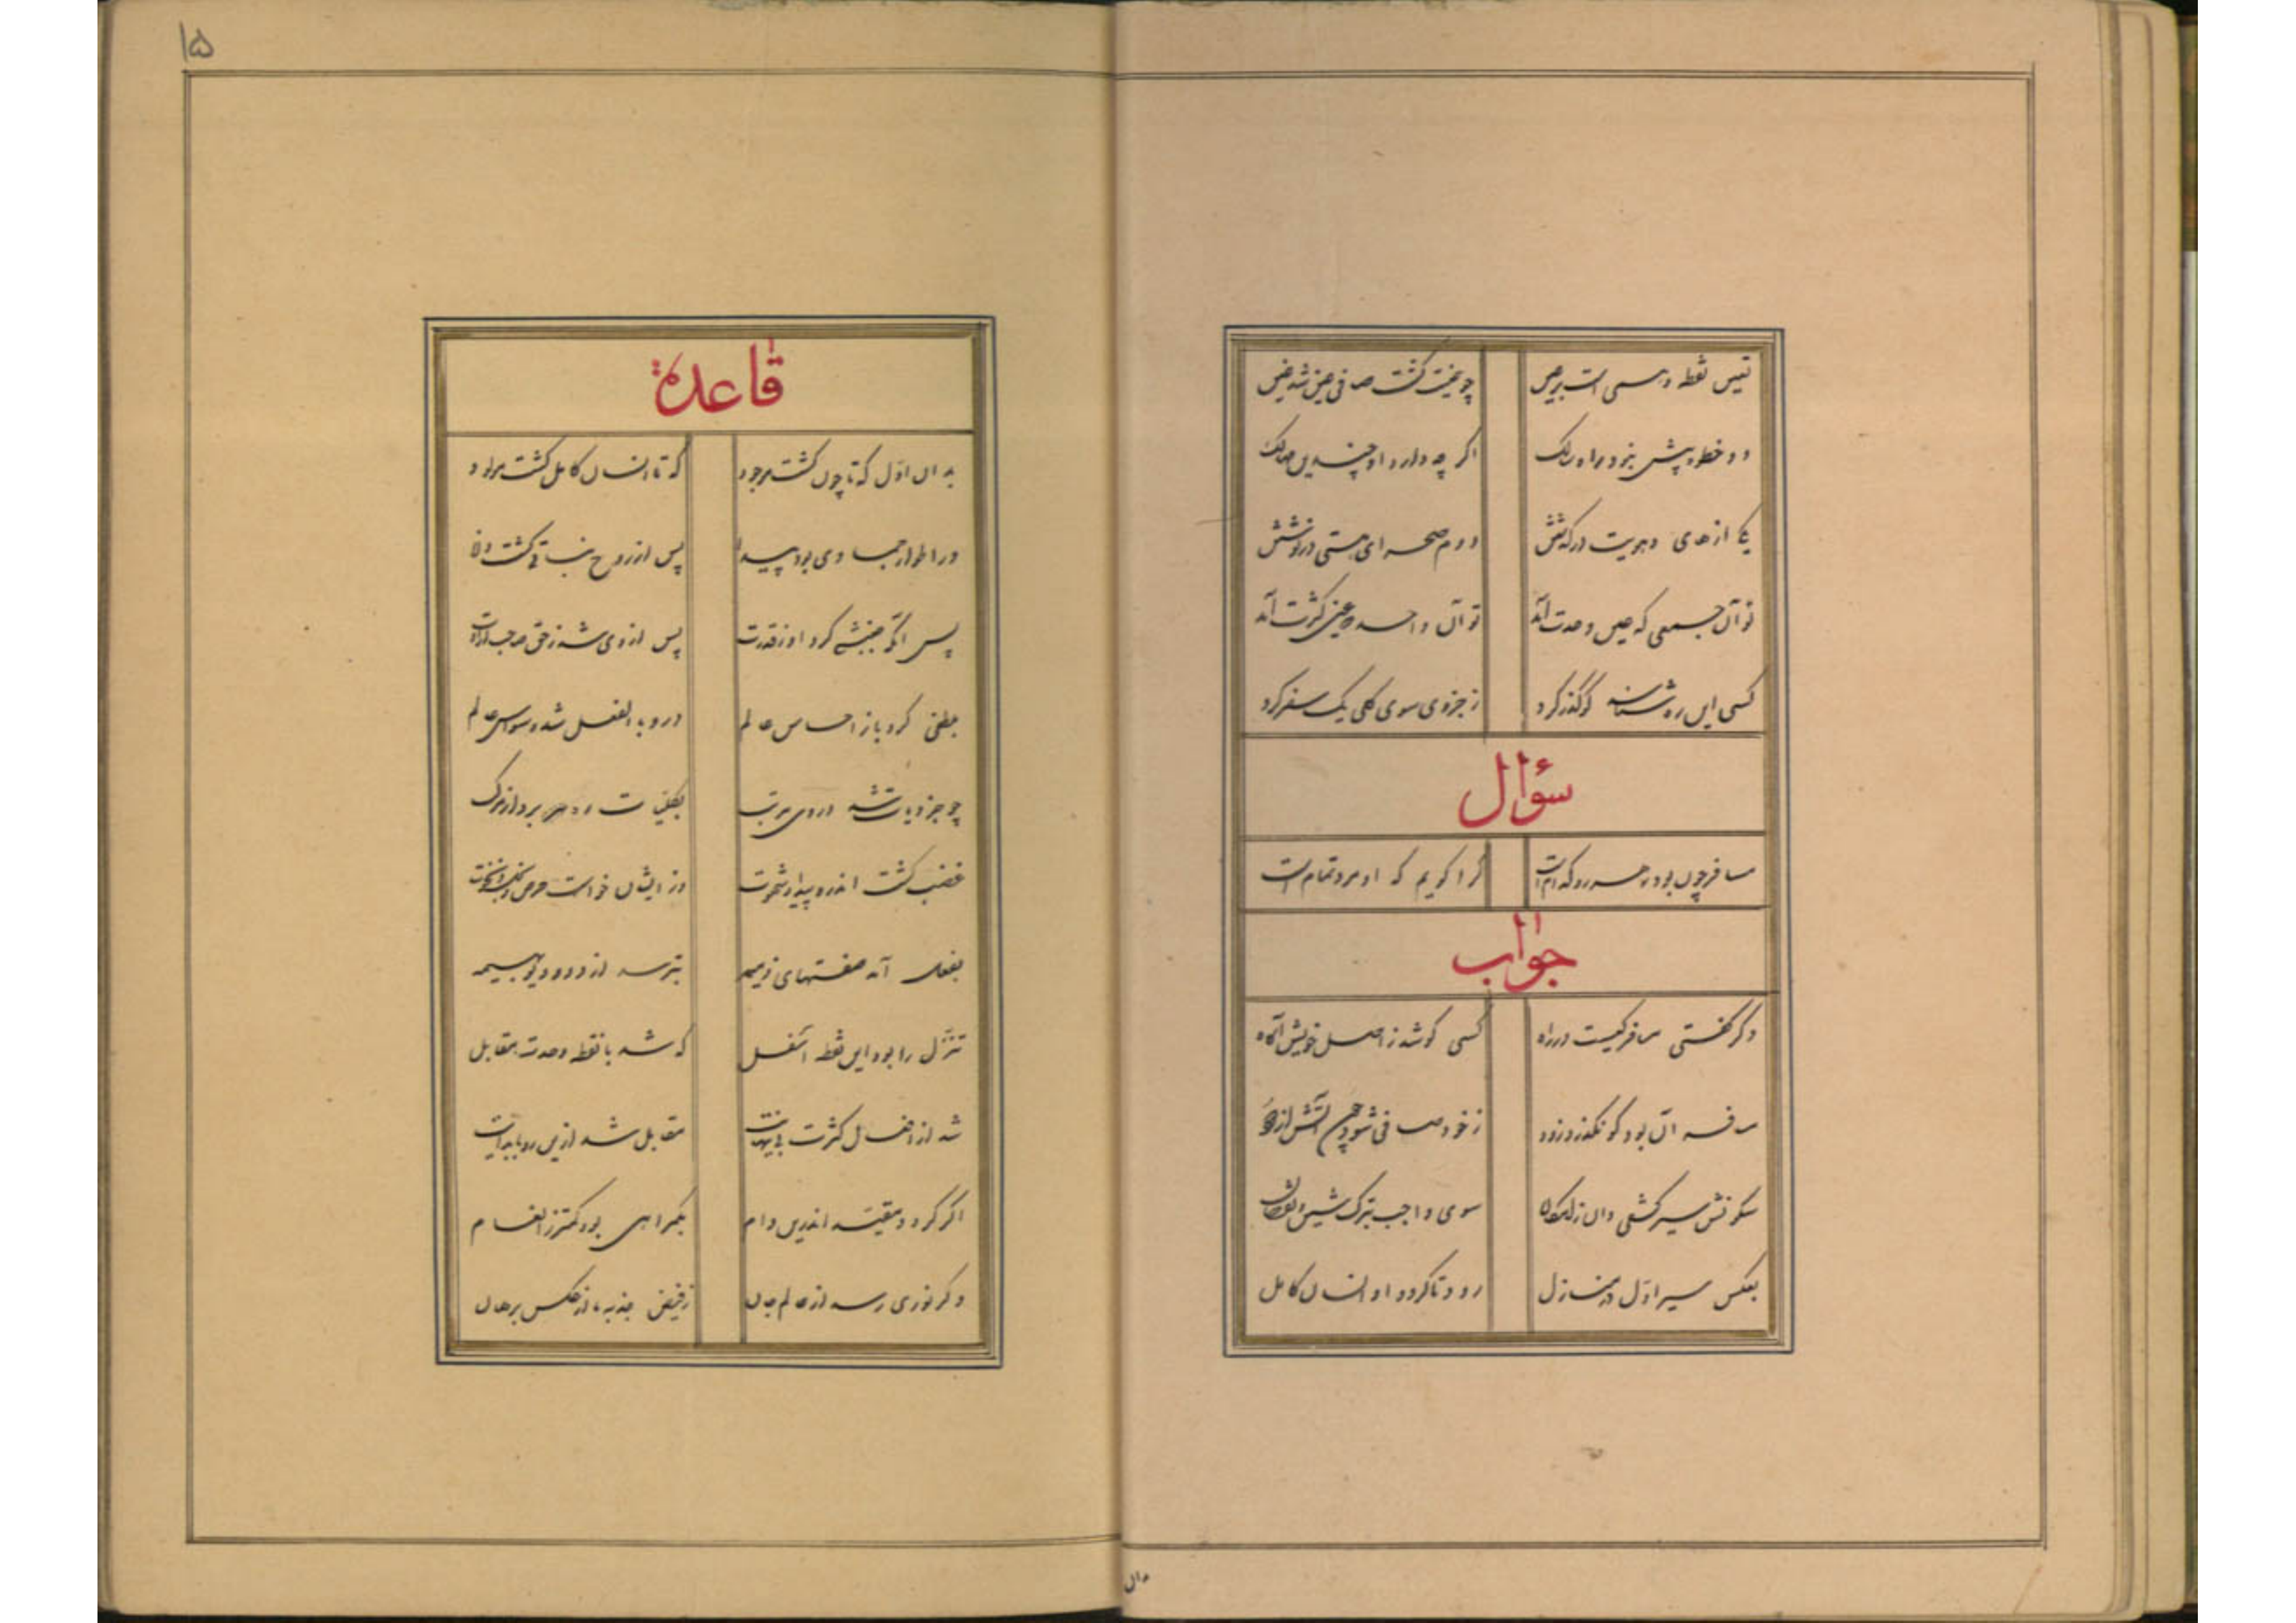 تعین نقطه وهمی است بر عین
چو عینت گشت صافی عین شد عین
دو خطوه بیش نبود راه سالک
اگر چه دارد او چندین مهالک
یک از های هویت درگذشتن
دوم صحرای هستی درنوشتن
تو آن جمعی که عین وحدت آمد
تو آن واحد که عین کثرت آمد
کسی این ره شناسد کو گذر کرد
ز جزوی سوی کلی یک سفر کرد
سؤال
مسافر چون بود رهرو کدام است
کرا گویم که او مرد تمام است
جواب
دگر گفتی مسافر کیست در راه
کسی کو شد ز اصل خویش آگاه
مسافر آن بود کو بگذرد زود
ز خود صافی شود چون آتش از دود
سلوکش سیر کشفی دان ز امکان
سوی واجب بترک شین و نقصان
بعکس سیر اول در منازل
رود تا گردد او انسان کامل
۱۵
قاعدة
بدان اول که تا چون گشت موجود
که تا انسان کامل گشت مولود
در اطوار جمادی بود پیدا
پس از روح نباتی گشت دانا
پس آنگه جنبشی کرد او ز قدرت
پس از وی شد ز حق صاحب ارادت
بطفلی کرد باز احساس عالم
درو بالفعل شد وسواس عالم
چو جزویات شد در وی مرتب
بکلیات ره برد از مرکب
غضب گشت اندرو پیدا و شهوت
وز ایشان خواست حرص و بخل و نخوت
بفعل آمد صفتهای ذمیمه
بتر شد از دد و دیو و بهیمه
تنزل را بود این نقطه اسفل
که شد با نقطه وحدت مقابل
شد از افعال کثرت بی نهایت
مقابل شد ازین رو با بدایت
اگر گردد مقید اندرین دام
بگمراهی بود کمتر ز انعام
وگر نوری رسد از عالم جان
ز فیض جذبه یا از عکس برهان